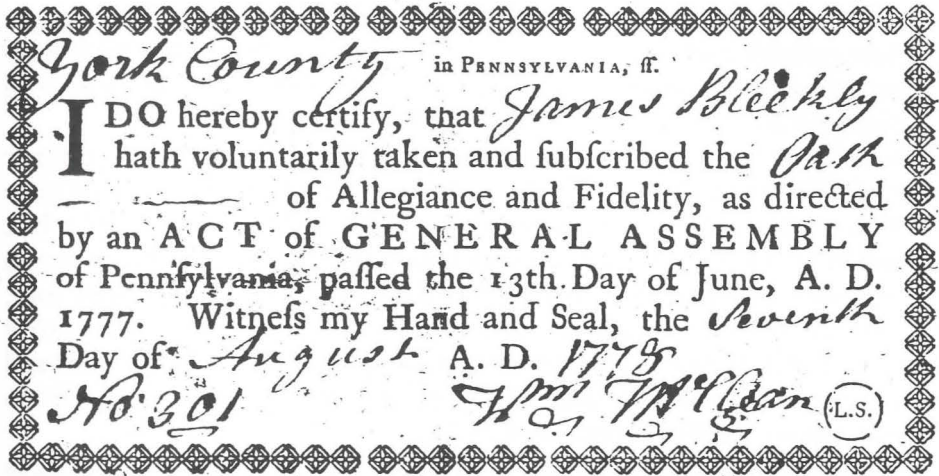 York County in PENNSYLVANIA, ſſ.
I DO hereby certify, that James Bleekly
hath voluntarily taken and ſubſcribed the Oath
of Allegiance and Fidelity, as directed
by an ACT of GENERAL ASSEMBLY
of Pennſylvania, paſſed the 13th. Day of June, A. D.
1777. Witneſs my Hand and Seal, the Seventh
Day of August A. D. 1778
No 301 Wm McClean L.S.